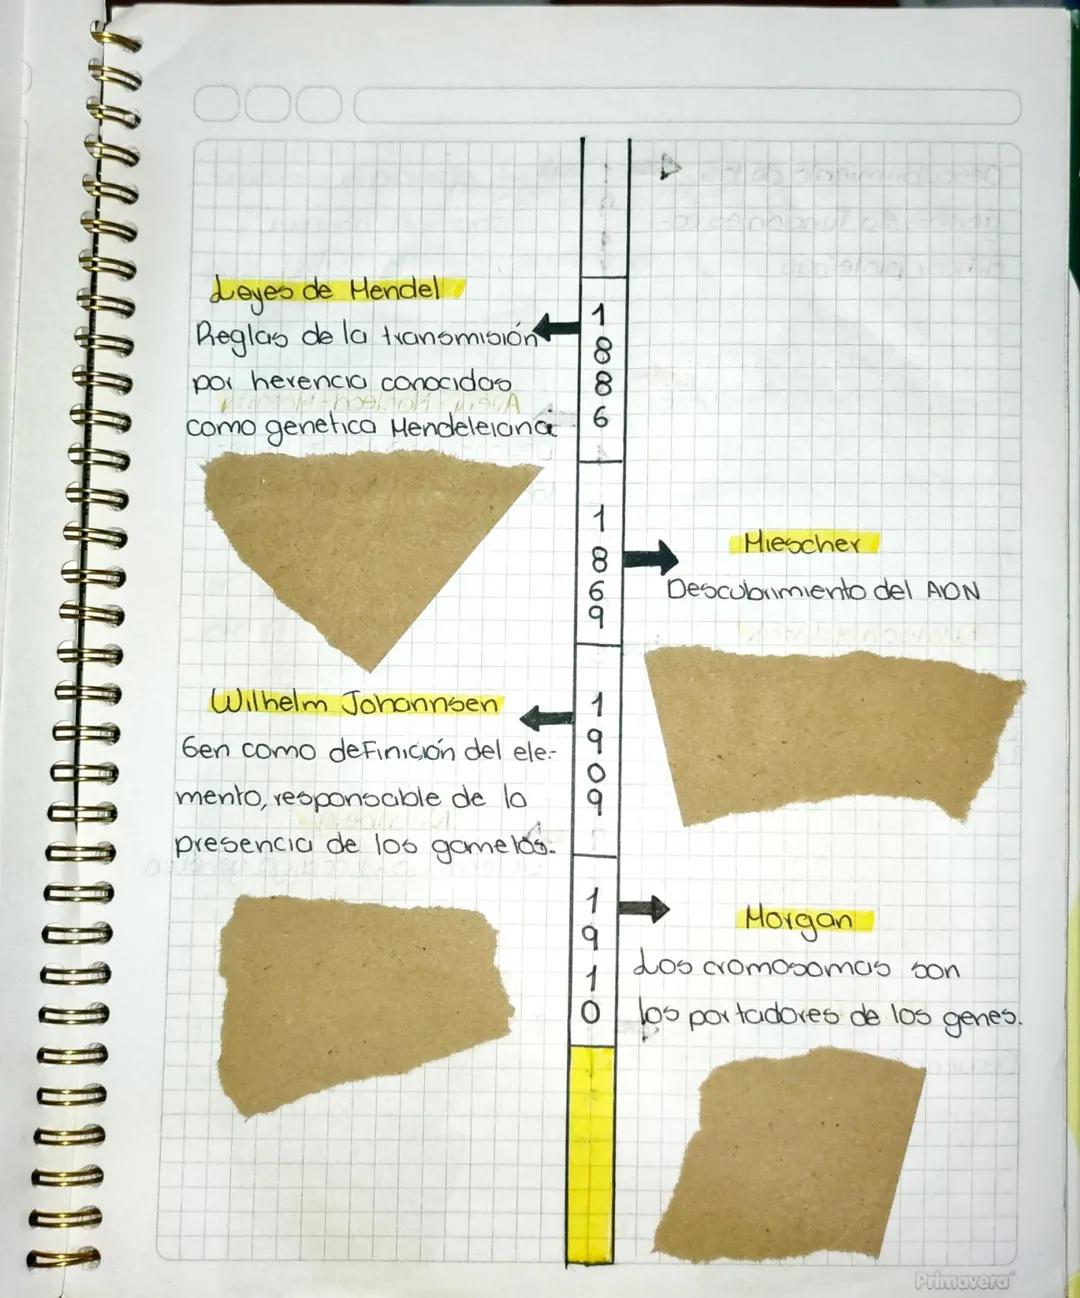 Leyes de Mendel
Reglas de la transmisión
por herencia conocidas
como genetica Mendeleiana
1886
1869
Miescher
Descubrimiento del ADN
Wilhelm Johannsen
1909
Gen como definición del ele-
mento, responsable de la
presencia de los gametos.
1910
Morgan
Los cromosomas son
los portadores de los genes.
Primavera